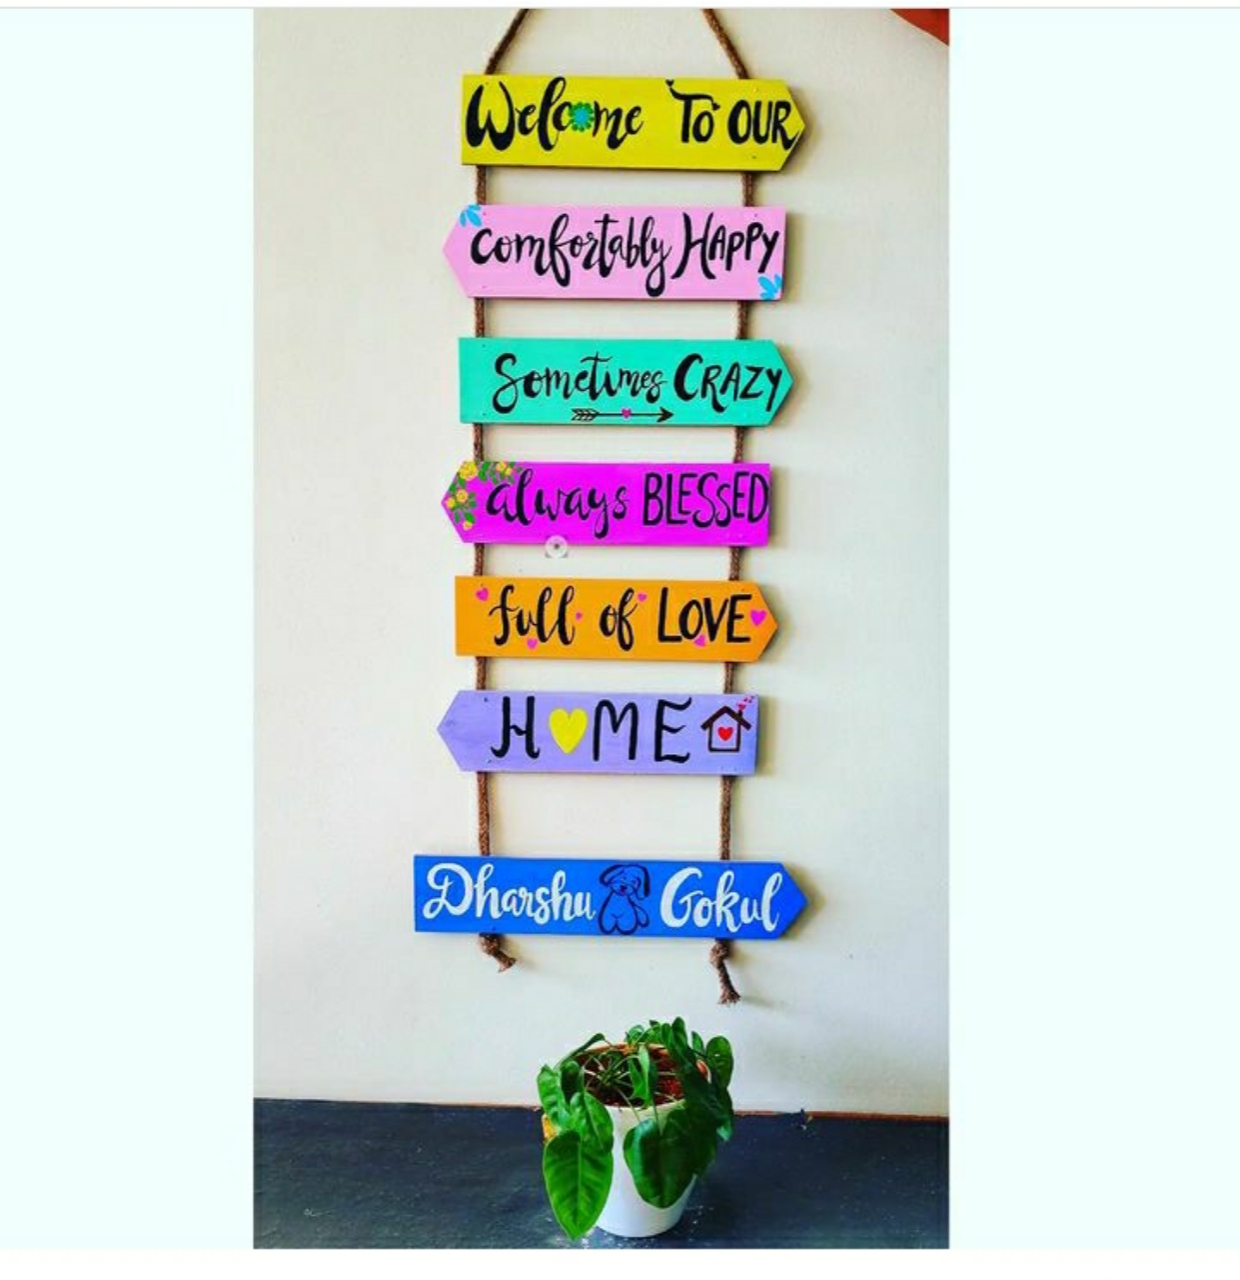 Welcome To OUR
comfortably HAPPY
Sometimes CRAZY
always BLESSED
full of LOVE
HOME
Dharshu Gokul